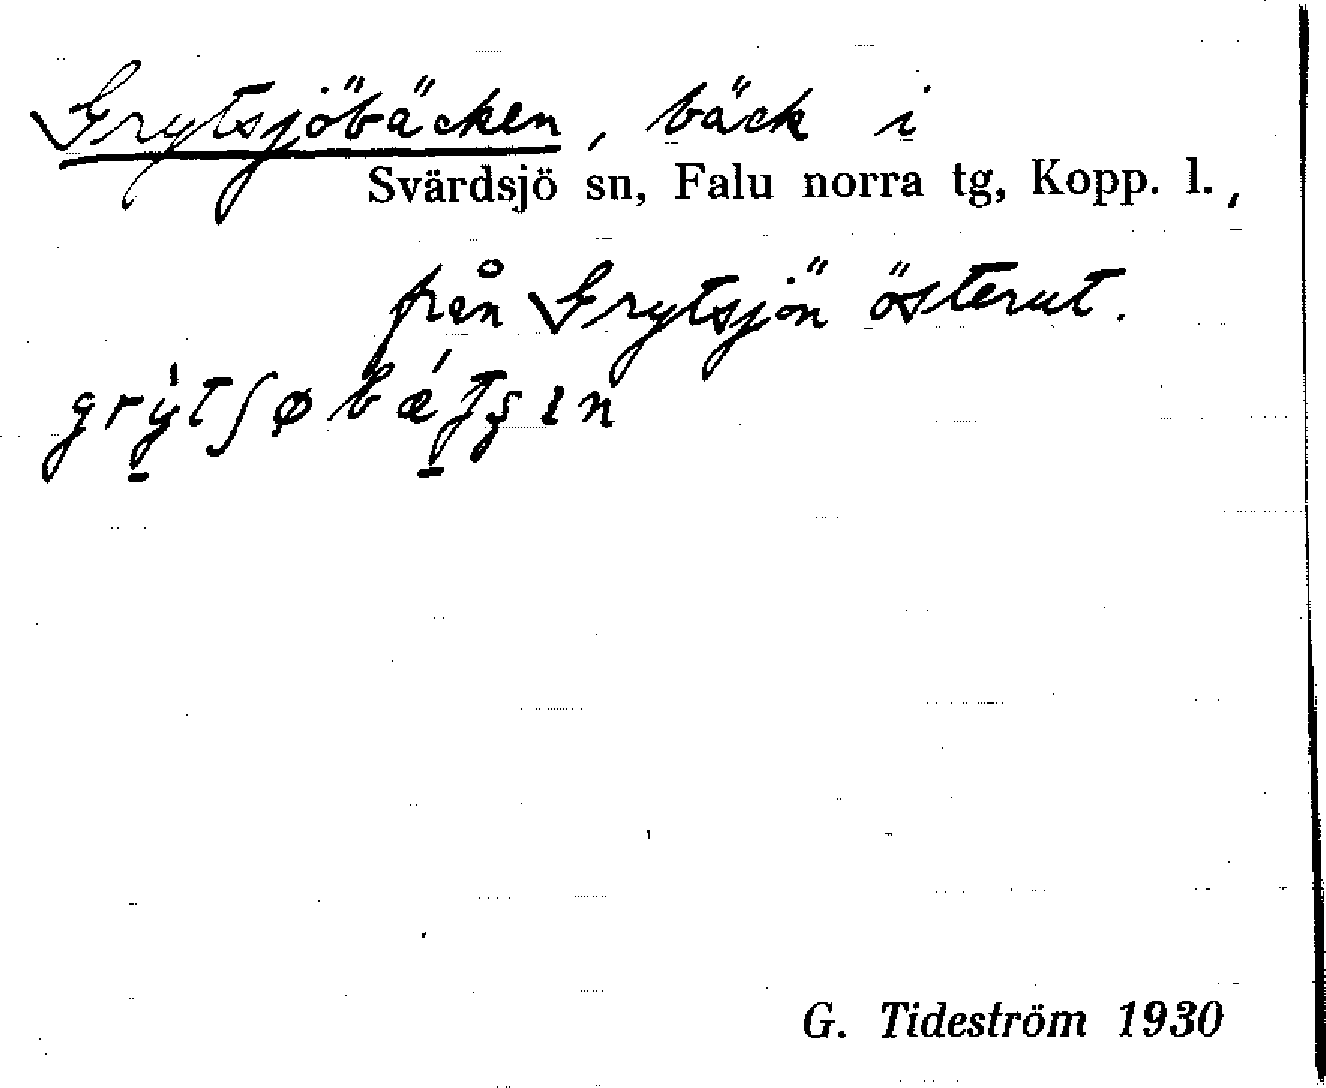 Grytsjöbäcken, bäck i
Svärdsjö sn, Falu norra tg, Kopp. l.,
från Grytsjön österut.
G. Tideström 1930